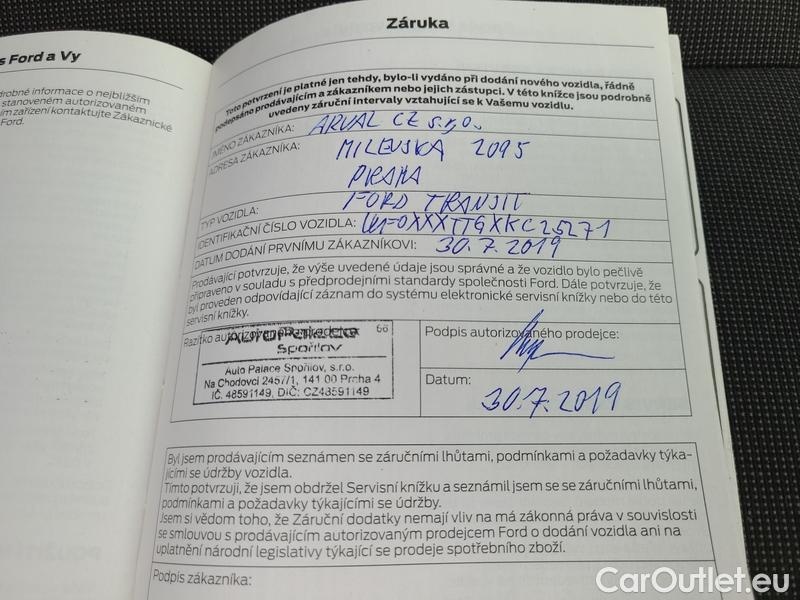 s Ford a Vy
drobné informace o nejbližším
stanoveném autorizovaném
ím zařízení kontaktujte Zákaznické
Ford.
Záruka
Toto potvrzení je platné jen tehdy, bylo-li vydáno při dodání nového vozidla, řádně
podepsáno prodávajícím a zákazníkem nebo jejich zástupci. V této knížce jsou podrobně
uvedeny záruční intervaly vztahující se k Vašemu vozidlu.
JMÉNO ZÁKAZNÍKA: ARVAL CZ s.r.o.
ADRESA ZÁKAZNÍKA: MILEVSKA 2095
PRAHA
TYP VOZIDLA: FORD TRANSIT
IDENTIFIKAČNÍ ČÍSLO VOZIDLA: WF0XXXTTGXKC25271
DATUM DODÁNÍ PRVNÍMU ZÁKAZNÍKOVI: 30.7.2019
Prodávající potvrzuje, že výše uvedené údaje jsou správné a že vozidlo bylo pečlivě
připraveno v souladu s předprodejními standardy společnosti Ford. Dále potvrzuje, že
byl proveden odpovídající záznam do systému elektronické servisní knížky nebo do této
servisní knížky.
Razítko autorizovaného prodejce
66
AUTO PALACE
Spořilov
Auto Palace Spořilov, s.r.o.
Na Chodovci 2457/1, 141 00 Praha 4
IČ: 48591149, DIČ: CZ48591149
Podpis autorizovaného prodejce:
Datum:
30.7.2019
Byl jsem prodávajícím seznámen se záručními lhůtami, podmínkami a požadavky týka-
jícími se údržby vozidla.
Tímto potvrzuji, že jsem obdržel Servisní knížku a seznámil jsem se se záručními lhůtami,
podmínkami a požadavky týkajícími se údržby.
Jsem si vědom toho, že Záruční dodatky nemají vliv na má zákonná práva v souvislosti
se smlouvou s prodávajícím autorizovaným prodejcem Ford o dodání vozidla ani na
uplatnění národní legislativy týkající se prodeje spotřebního zboží.
Podpis zákazníka:
CarOutlet.eu